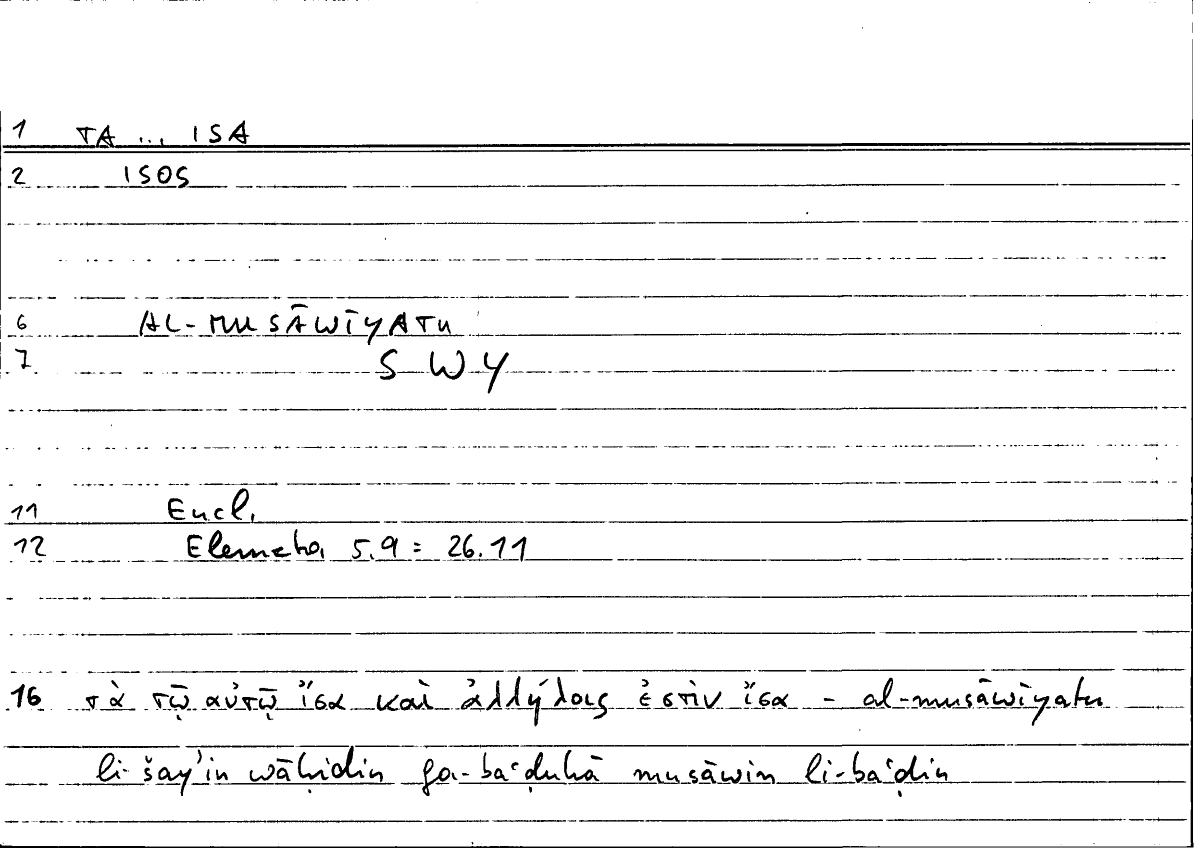 1 TA ... ISA
2 ISOS
6 AL-MUSĀWĪYATU
7 S W Y
11 Eucl.
12 Elementa 5.9 = 26.11
16 τὰ τῷ αὐτῷ ἴσα καὶ ἀλλήλοις ἐστὶν ἴσα - al-musāwīyatu
li-šayʾin wāḥidin fa-baʿḍuhā musāwin li-baʿḍin